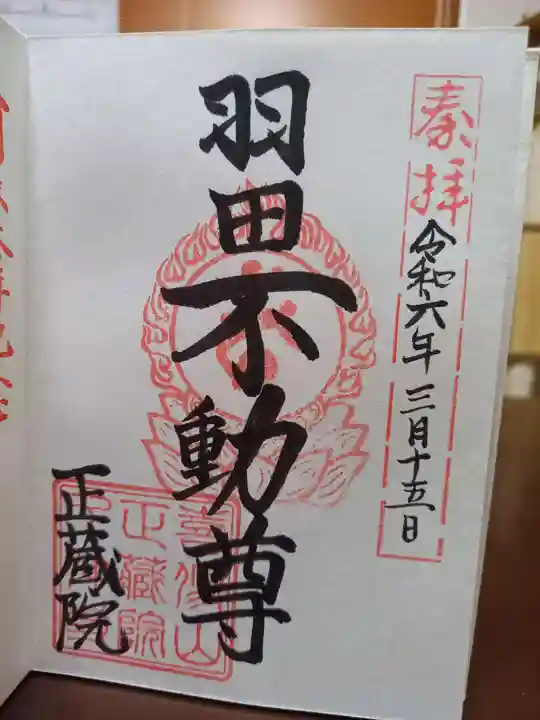 奉拝
令和六年三月十五日
羽田不動尊
正蔵院